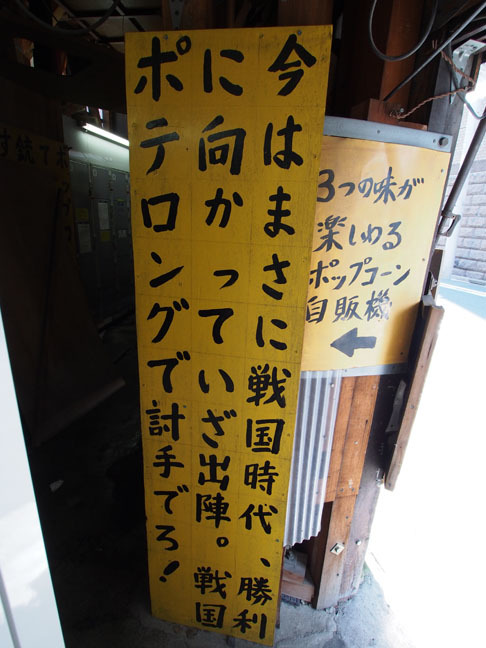 今はまさに戦国時代、勝利
に向かっていざ出陣。戦国
ポテロングで討手でろ！
3つの味が
楽しめる
ポップコーン
自販機